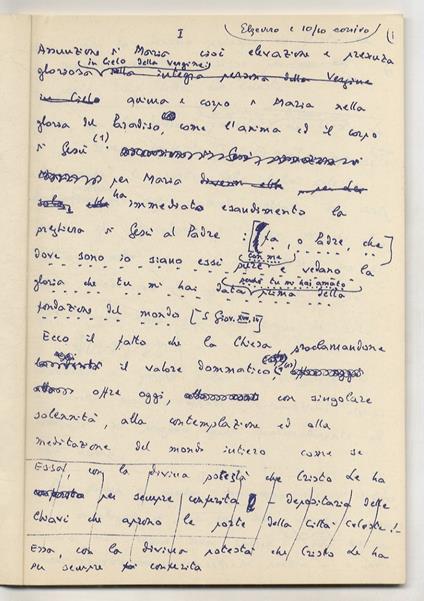 I
Elzeviro c 10/10 corsivo
(1
Assunzione di Maria cioè elevazione e presenza
in Cielo della Vergine:
gloriosa nella integra persona della Vergine
in Cielo anima e corpo di Maria nella
gloria del Paradiso, come l'anima ed il corpo
di Gesù (1)
per Maria
ha immediato esaudimento la
preghiera di Gesù al Padre: [fa, o Padre, che
con me
dove sono io siano essi pure e vedano la
perché tu mi hai amato
gloria che tu mi hai data prima della
fondazione del mondo [S. Giov. XVII, 24]
Ecco il fatto che la Chiesa, proclamandone
oggi
il valore dommatico,
offre oggi, con singolare
solennità, alla contemplazione ed alla
meditazione del mondo intiero come se
Essa, con la divina potestà che Cristo Le ha
per sempre conferita - depositaria delle
Chiavi che aprono le porte della Città Celeste!-
Essa, con la divina potestà che Cristo Le ha
per sempre conferita